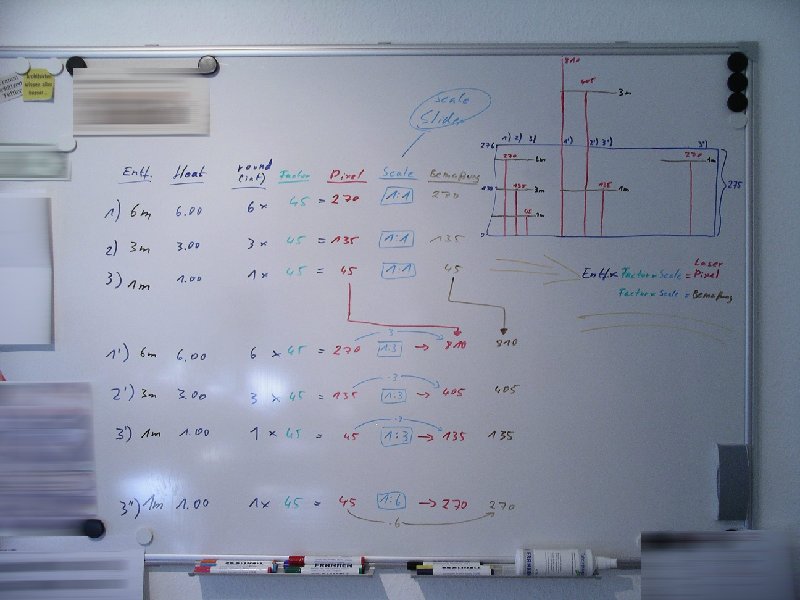 Scale
Slider
Entf. Float round (int) Factor Pixel Scale Bemaßung
1) 6m 6.00 6 x 45 = 270 1:1 270
2) 3m 3.00 3 x 45 = 135 1:1 135
3) 1m 1.00 1 x 45 = 45 1:1 45
1') 6m 6.00 6 x 45 = 270 1:3 → 810 810
·3
2') 3m 3.00 3 x 45 = 135 1:3 → 405 405
·3
3') 1m 1.00 1 x 45 = 45 1:3 → 135 135
3'') 1m 1.00 1 x 45 = 45 1:6 → 270 270
·6
810
405 3m
276 1) 2) 3) 1') 2') 3') 3'')
270 6m 270 1m
135 3m 135 1m
45 1m
275
Laser
Entf. x Factor x Scale = Pixel
Factor x Scale = Bemaßung
FRANKEN